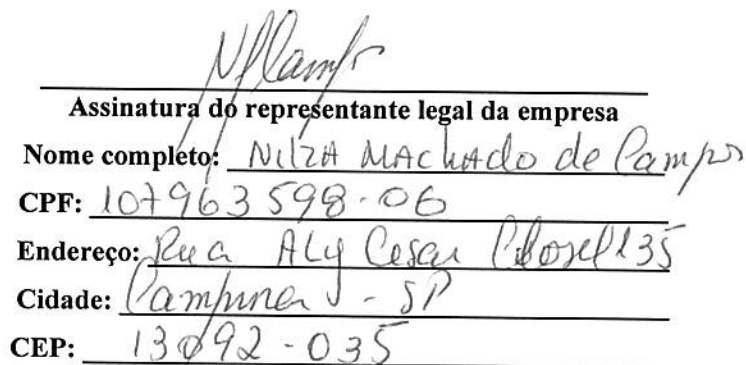 Assinatura do representante legal da empresa
Nome completo: Nilza Machado de Campos
CPF: 107963598-06
Endereço: Rua Aly Cesar 135
Cidade: Campinas - SP
CEP: 13092-035